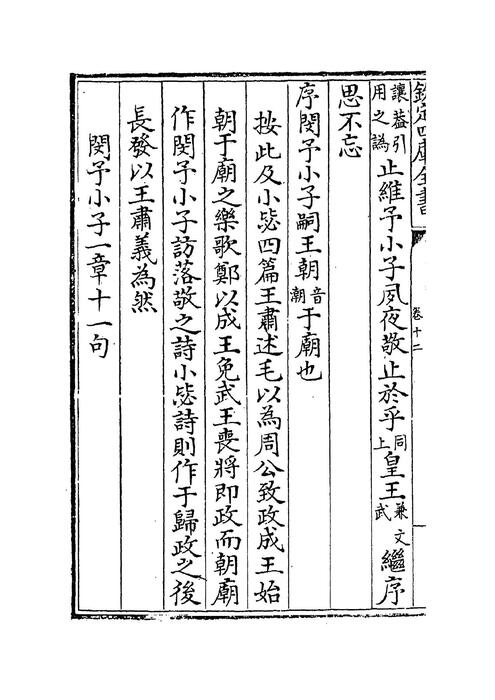 欽定四庫全書
卷十二
讓葢引
用之譌止維予小子夙夜敬止於乎同上皇王兼文武繼序
思不忘
序閔予小子嗣王朝音潮于廟也
按此及小毖四篇王肅述毛以為周公致政成王始
朝于廟之樂歌鄭以成王免武王喪將即政而朝廟
作閔予小子訪落敬之詩小毖詩則作于歸政之後
長發以王肅義為然
閔予小子一章十一句